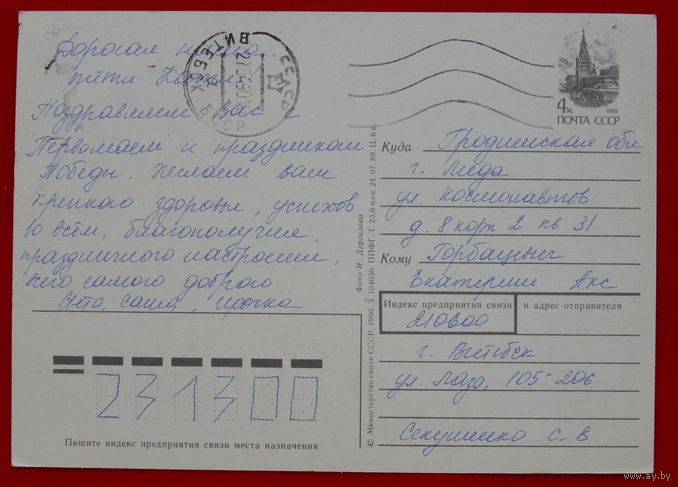 Дорогая наша
тётя Катя!
Поздравляем Вас с
Первомаем и праздником
Победы. Желаем вам
крепкого здоровья, успехов
во всём, благополучия,
праздничного настроения,
всего самого доброго.
Света, Саша, Ирочка
231300
Пишите индекс предприятия связи места назначения
ВИТЕБСК БССР
СССР
4к
1988
ПОЧТА СССР
Куда Гродненская обл
г. Лида
ул. Космонавтов
д. 8 корп 2 кв 31
Кому Горбацевич
Екатерине Алс
Индекс предприятия связи и адрес отправителя
210600
г. Витебск
ул. Лазо, 105-206
С. В
Фото И. Дергилева
© Министерство связи СССР. 1990. З. 104030. ППФГ. Т. 23,6 млн. 24.07.89. Ц. 6 к.
www.ay.by